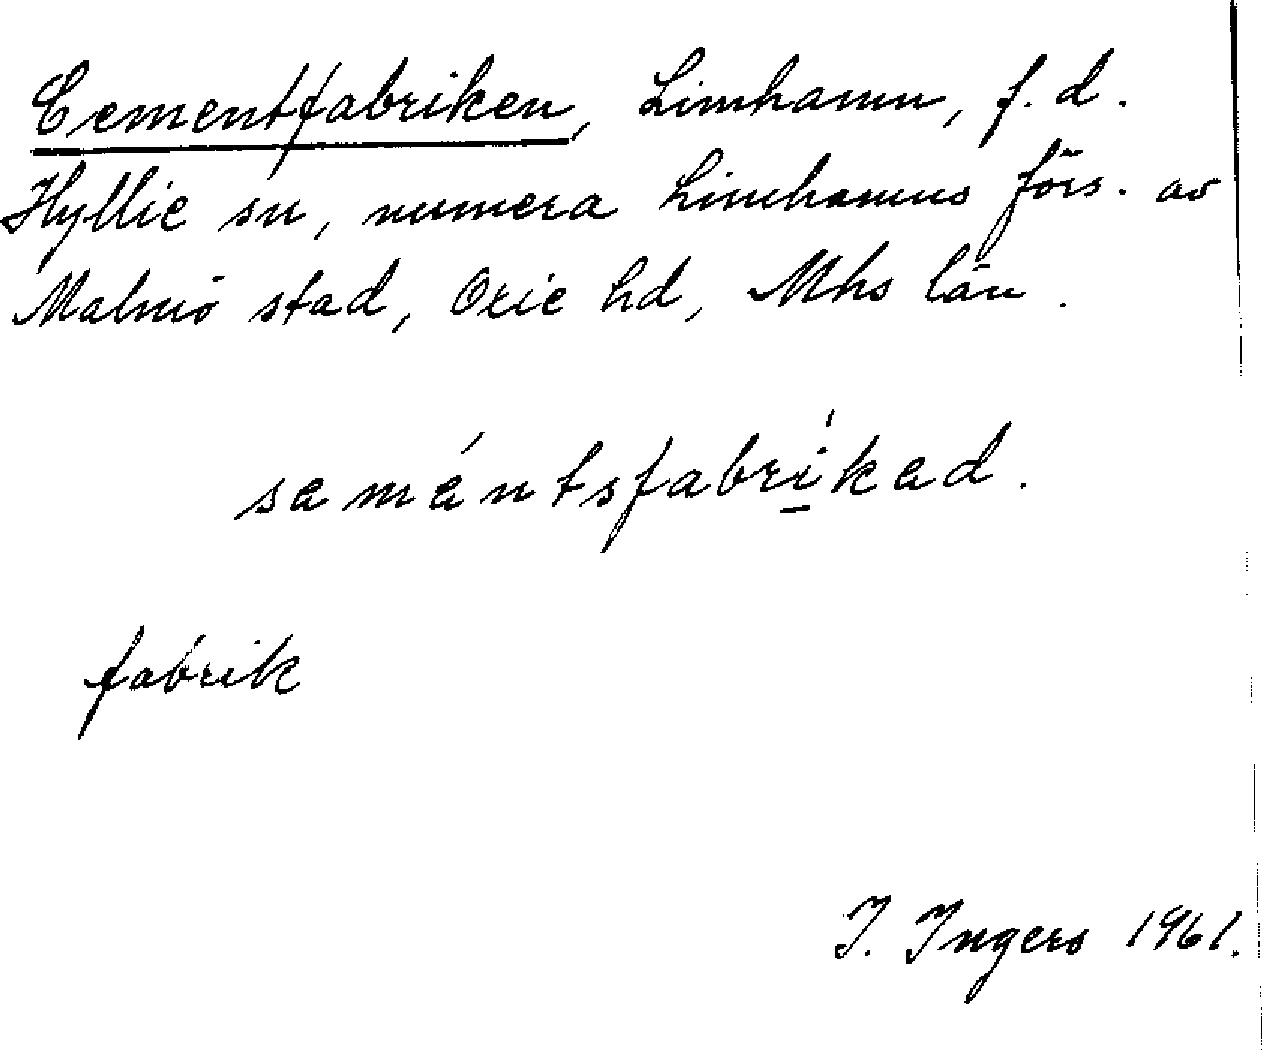 Cementfabriken, Limhamn, f. d.
Hyllie sn, numera Limhamns förs. av
Malmö stad, Oxie hd, Mhs län.
samántsfabríkad.
fabrik
I. Ingers 1961.